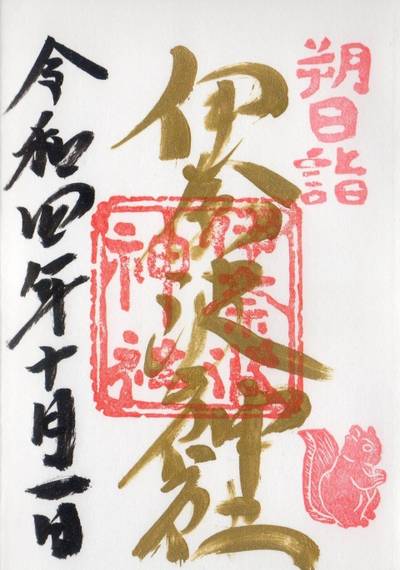 朔日詣
伊奈波神社
伊奈波
神社
令和四年十月一日